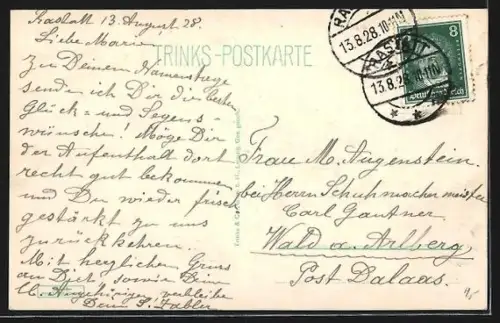 Rastatt 13. August 28.
Liebe Marie!
Zu Deinem Namenstage
senden ich Dir die besten
Glück- und Segens-
wünsche! Möge Dir
der Aufenthalt dort
recht gut bekommen
und Du wieder frisch
gestärkt zu uns
zurückkehren.
Mit herzlichem Gruss
an Dich, sowie Deine
Angehörigen verbleibe
Dein
TRINKS-POSTKARTE
RASTATT
13.8.28.10-11N
RASTATT
13.8.28.10-11N
8
Deutsches Reich
Frau M. Augenstein.
bei Herrn Schuhmachermeister
Carl Gantner
Wald a. Arlberg
Post Dalaas.